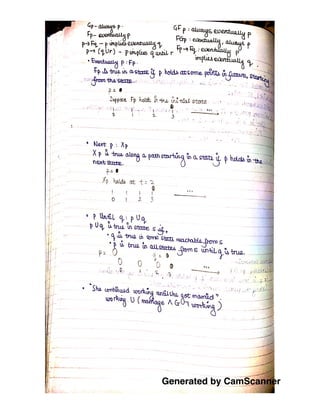 Gp - always p.
Fp - eventually p
p→Fq - p implies eventually q
p→(qUr) - p implies q until r
GFp - always, eventually p
FGp - eventually, always p
Fp→Fq - eventually p
implies eventually q.
• Eventually p : Fp.
Fp is true in a state if p holds at some points in future, starting
from the state
p = 0
Suppose Fp holds in the initial state
1 2 3
• Next p : Xp
Xp is true along a path starting in a state if p holds in the
next state.
p = 0
Xp holds at t = 2
0 1 2 3
• p Until q : p U q
p U q is true in state s if,
• q is true in some state reachable from s
• p is true in all states from s until q is true.
• "She continued working until she got married".
working U (marriage ∧ G ¬ working)
Generated by CamScanner